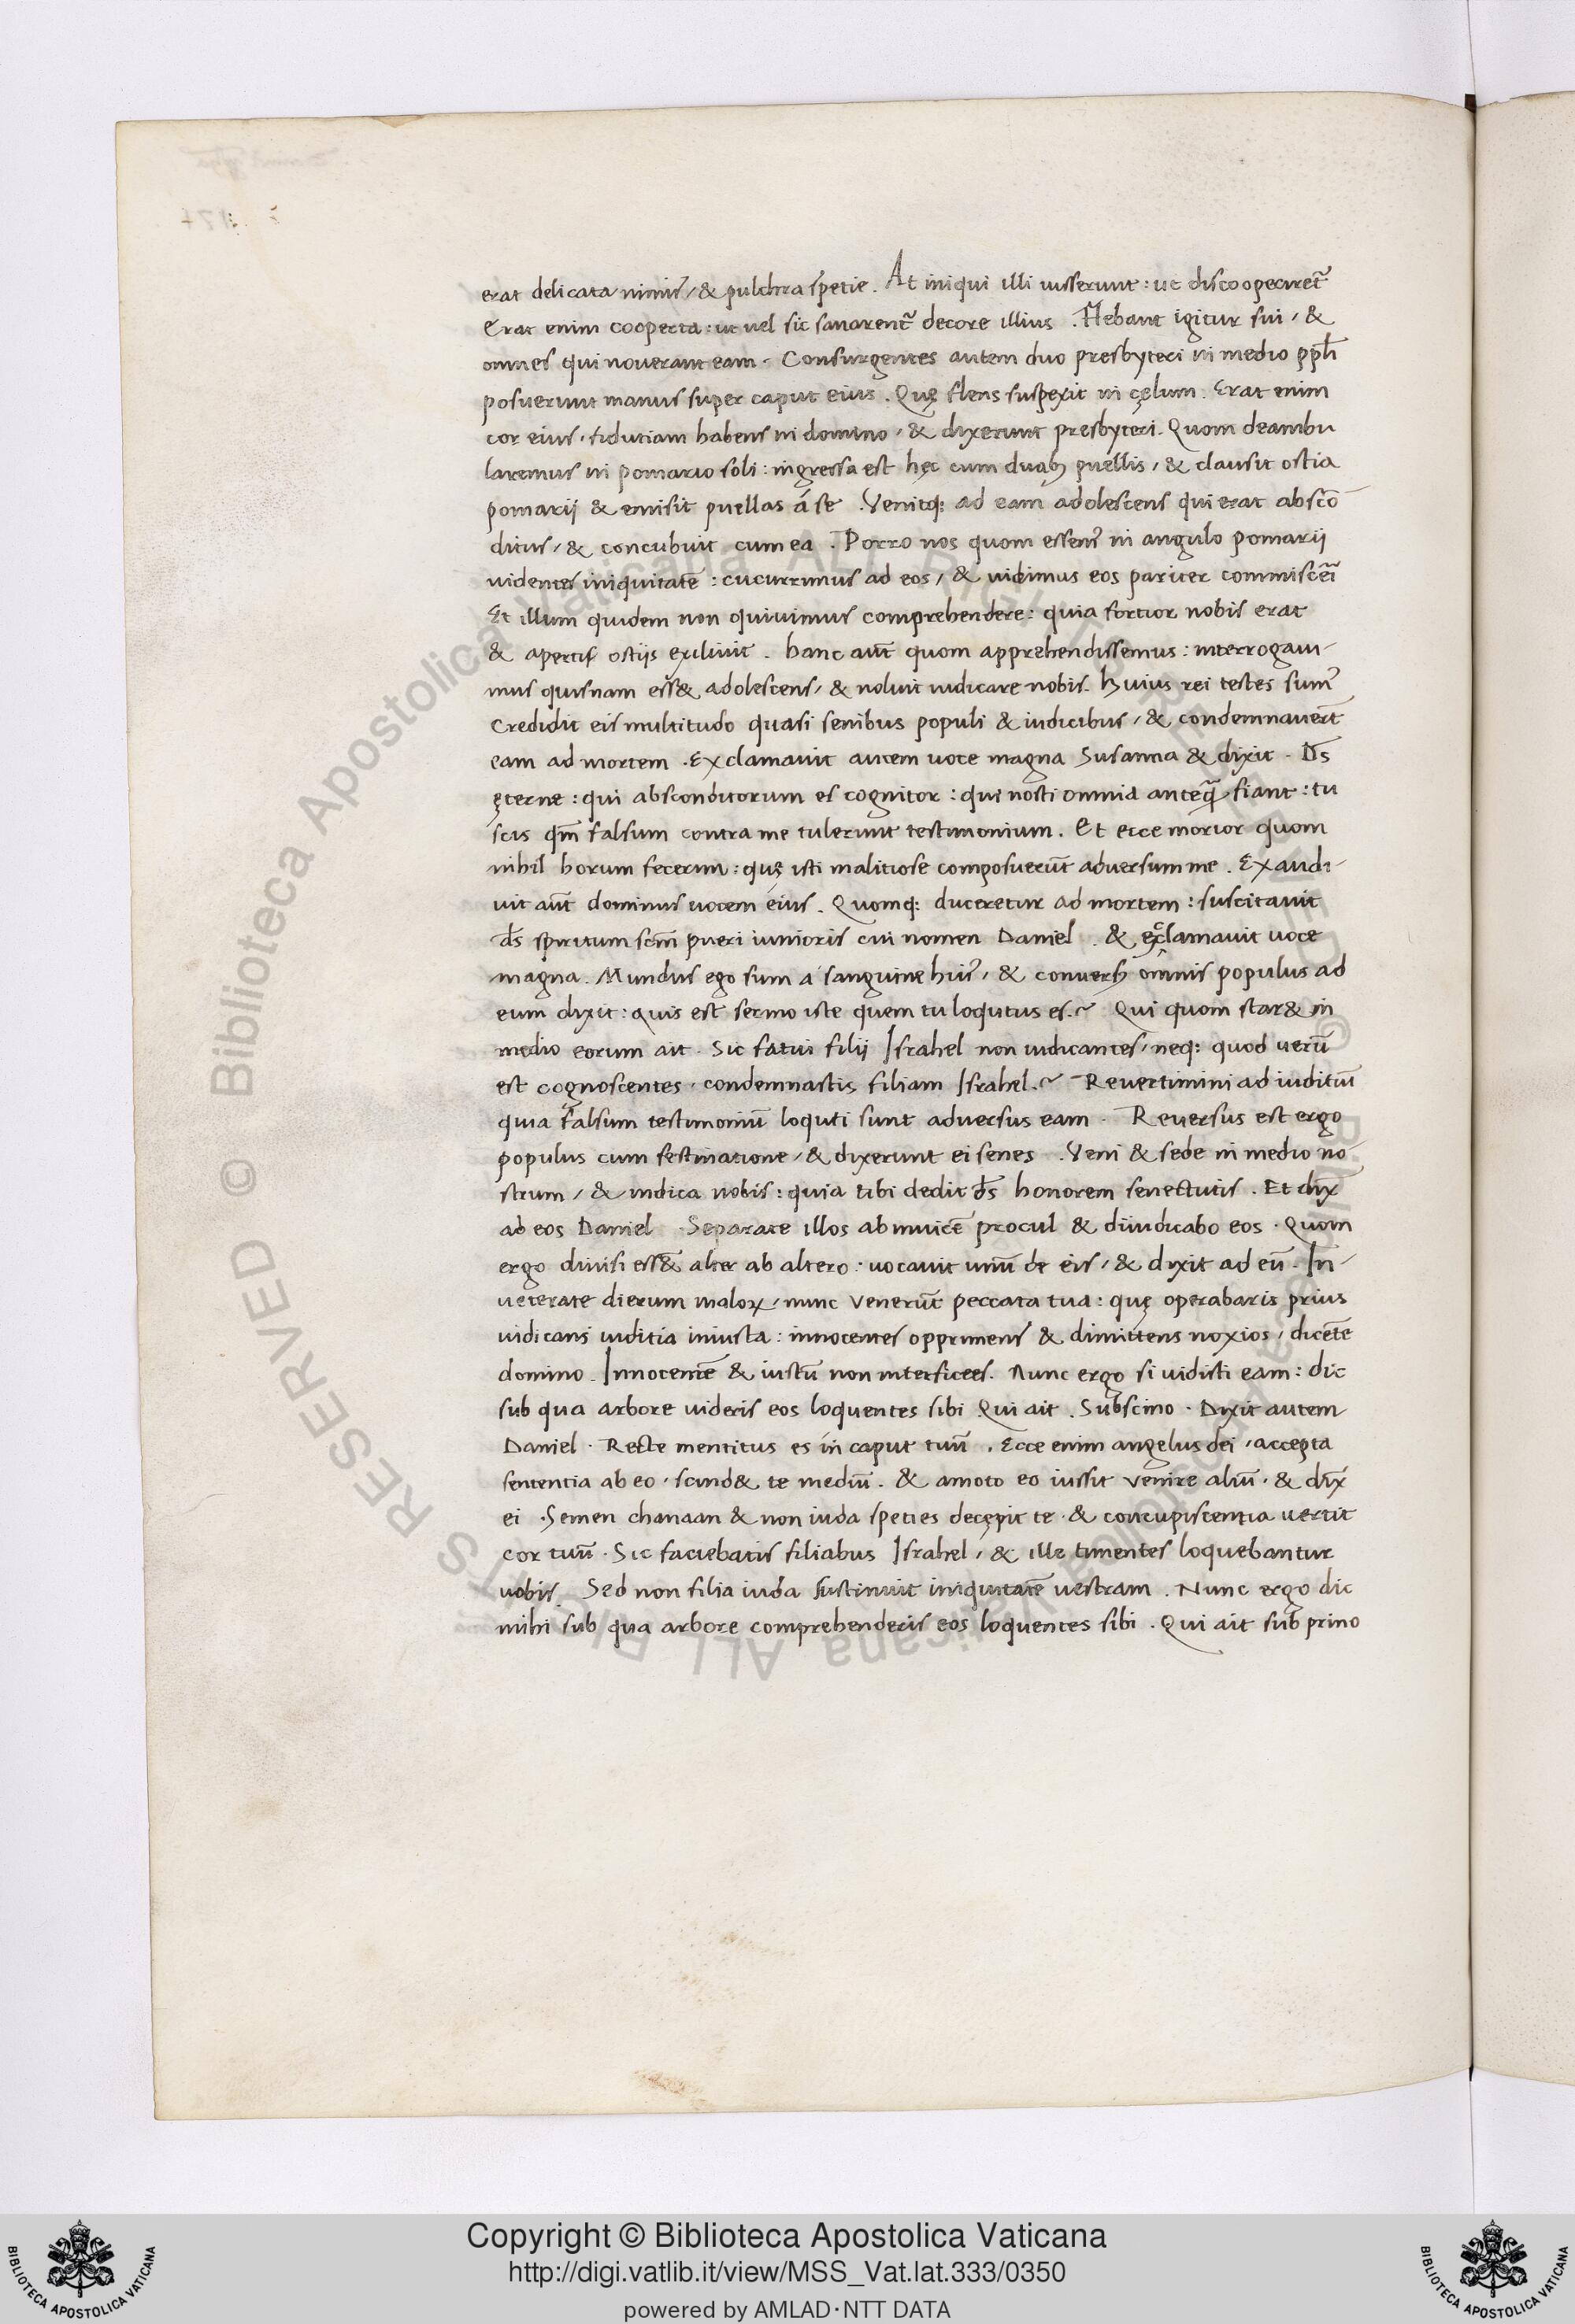 erat delicata nimis, & pulchra spetie. At iniqui illi iusserunt: ut discooperiret᷑
Erat enim cooperta: ut vel sic sanarent᷑ decore illius. Flebant igitur sui, &
omnes qui noverant eam. Consurgentes autem duo presbyteri in medio pplī
posuerunt manus super caput eius. Quę flens suspexit in cęlum. Erat enim
cor eius, fidutiam habens in domino, & dixerunt presbyteri. Quom deambu
laremus in pomario soli: ingressa est hęc cum duabꝫ puellis, & clausit ostia
pomarij & emisit puellas á se. Venitq: ad eam adolescens qui erat abscō
ditus, & concubuit cum ea. Porro nos quom essem᷒ in angulo pomarij
videntes iniquitatē: cucurrimus ad eos, & uidimus eos pariter commiscēi
Et illum quidem non quivimus comprehendere: quia fortior nobis erat
& apertis ostijs exilivit. hanc aūt quom apprehendissemus: interrogavi-
mus quisnam ess& adolescens, & noluit indicare nobis. huius rei testes sum᷒
Credidit eis multitudo quasi senibus populi & iudicibus, & condemnaverūt
eam ad mortem. Exclamavit autem voce magna Susanna & dixit. Ds̄
ęterne: qui absconditorum es cognitor: qui nosti omnia anteq̄ fiant: tu
scis qm̄ falsum contra me tulerunt testimonium. Et ecce morior quom
nihil horum fecerim: quę isti malitiose composuerūt adversum me. Exaudi-
vit aūt dominus vocem eius. Quomq: duceretur ad mortem: suscitavit
ds̄ spiritum scm̄ pueri iunioris cui nomen Daniel. & exclamavit voce
magna. Mundus ego sum a sanguine hui᷒, & conversꝫ omnis populus ad
eum dixit: quis est sermo iste quem tu loqutus es.~ Qui quom star& in
medio eorum ait. Sic fatui filij Israhel non iudicantes, neq: quod verū
est cognoscentes, condemnastis filiam Israhel.~ Revertimini ad iuditiū
quia falsum testimoniū loquti sunt adversus eam. Reversus est ergo
populus cum festinatione, & dixerunt ei senes. Veni & sede in medio no
strum, & indica nobis: quia tibi dedit ds̄ honorem senectutis. Et dix̄
ad eos Daniel. Separate illos ab invicē procul & diiudicabo eos. Quom
ergo divisi ess&̄ alter ab altero: vocavit unū de eis, & dixit ad eū. In-
veterate dierum maloꝝ, nunc venerūt peccata tua: quę operabaris prius
iudicans iuditia iniusta: innocentes opprimens & dimittens noxios, dicēte
domino. Innocentē & iustū non interficies. Nunc ergo si vidisti eam: dic
sub qua arbore videris eos loquentes sibi Qui ait. Subscino. Dixit autem
Daniel. Recte mentitus es in caput tuū. Ecce enim angelus dei, accepta
sententia ab eo, scind& te mediū. & amoto eo iussit venire aliū. & dix̄
ei. Semen chanaan & non iuda species decępit te & concupiscentia vertit
cor tuū. Sic faciebatis filiabus Israhel, & ille timentes loquebantur
vobis. Sed non filia iuda sustinuit iniquitatē vestram. Nunc ergo dic
mihi sub qua arbore comprehenderis eos loquentes sibi. Qui ait sub prino
Copyright © Biblioteca Apostolica Vaticana
http://digi.vatlib.it/view/MSS_Vat.lat.333/0350
powered by AMLAD·NTT DATA